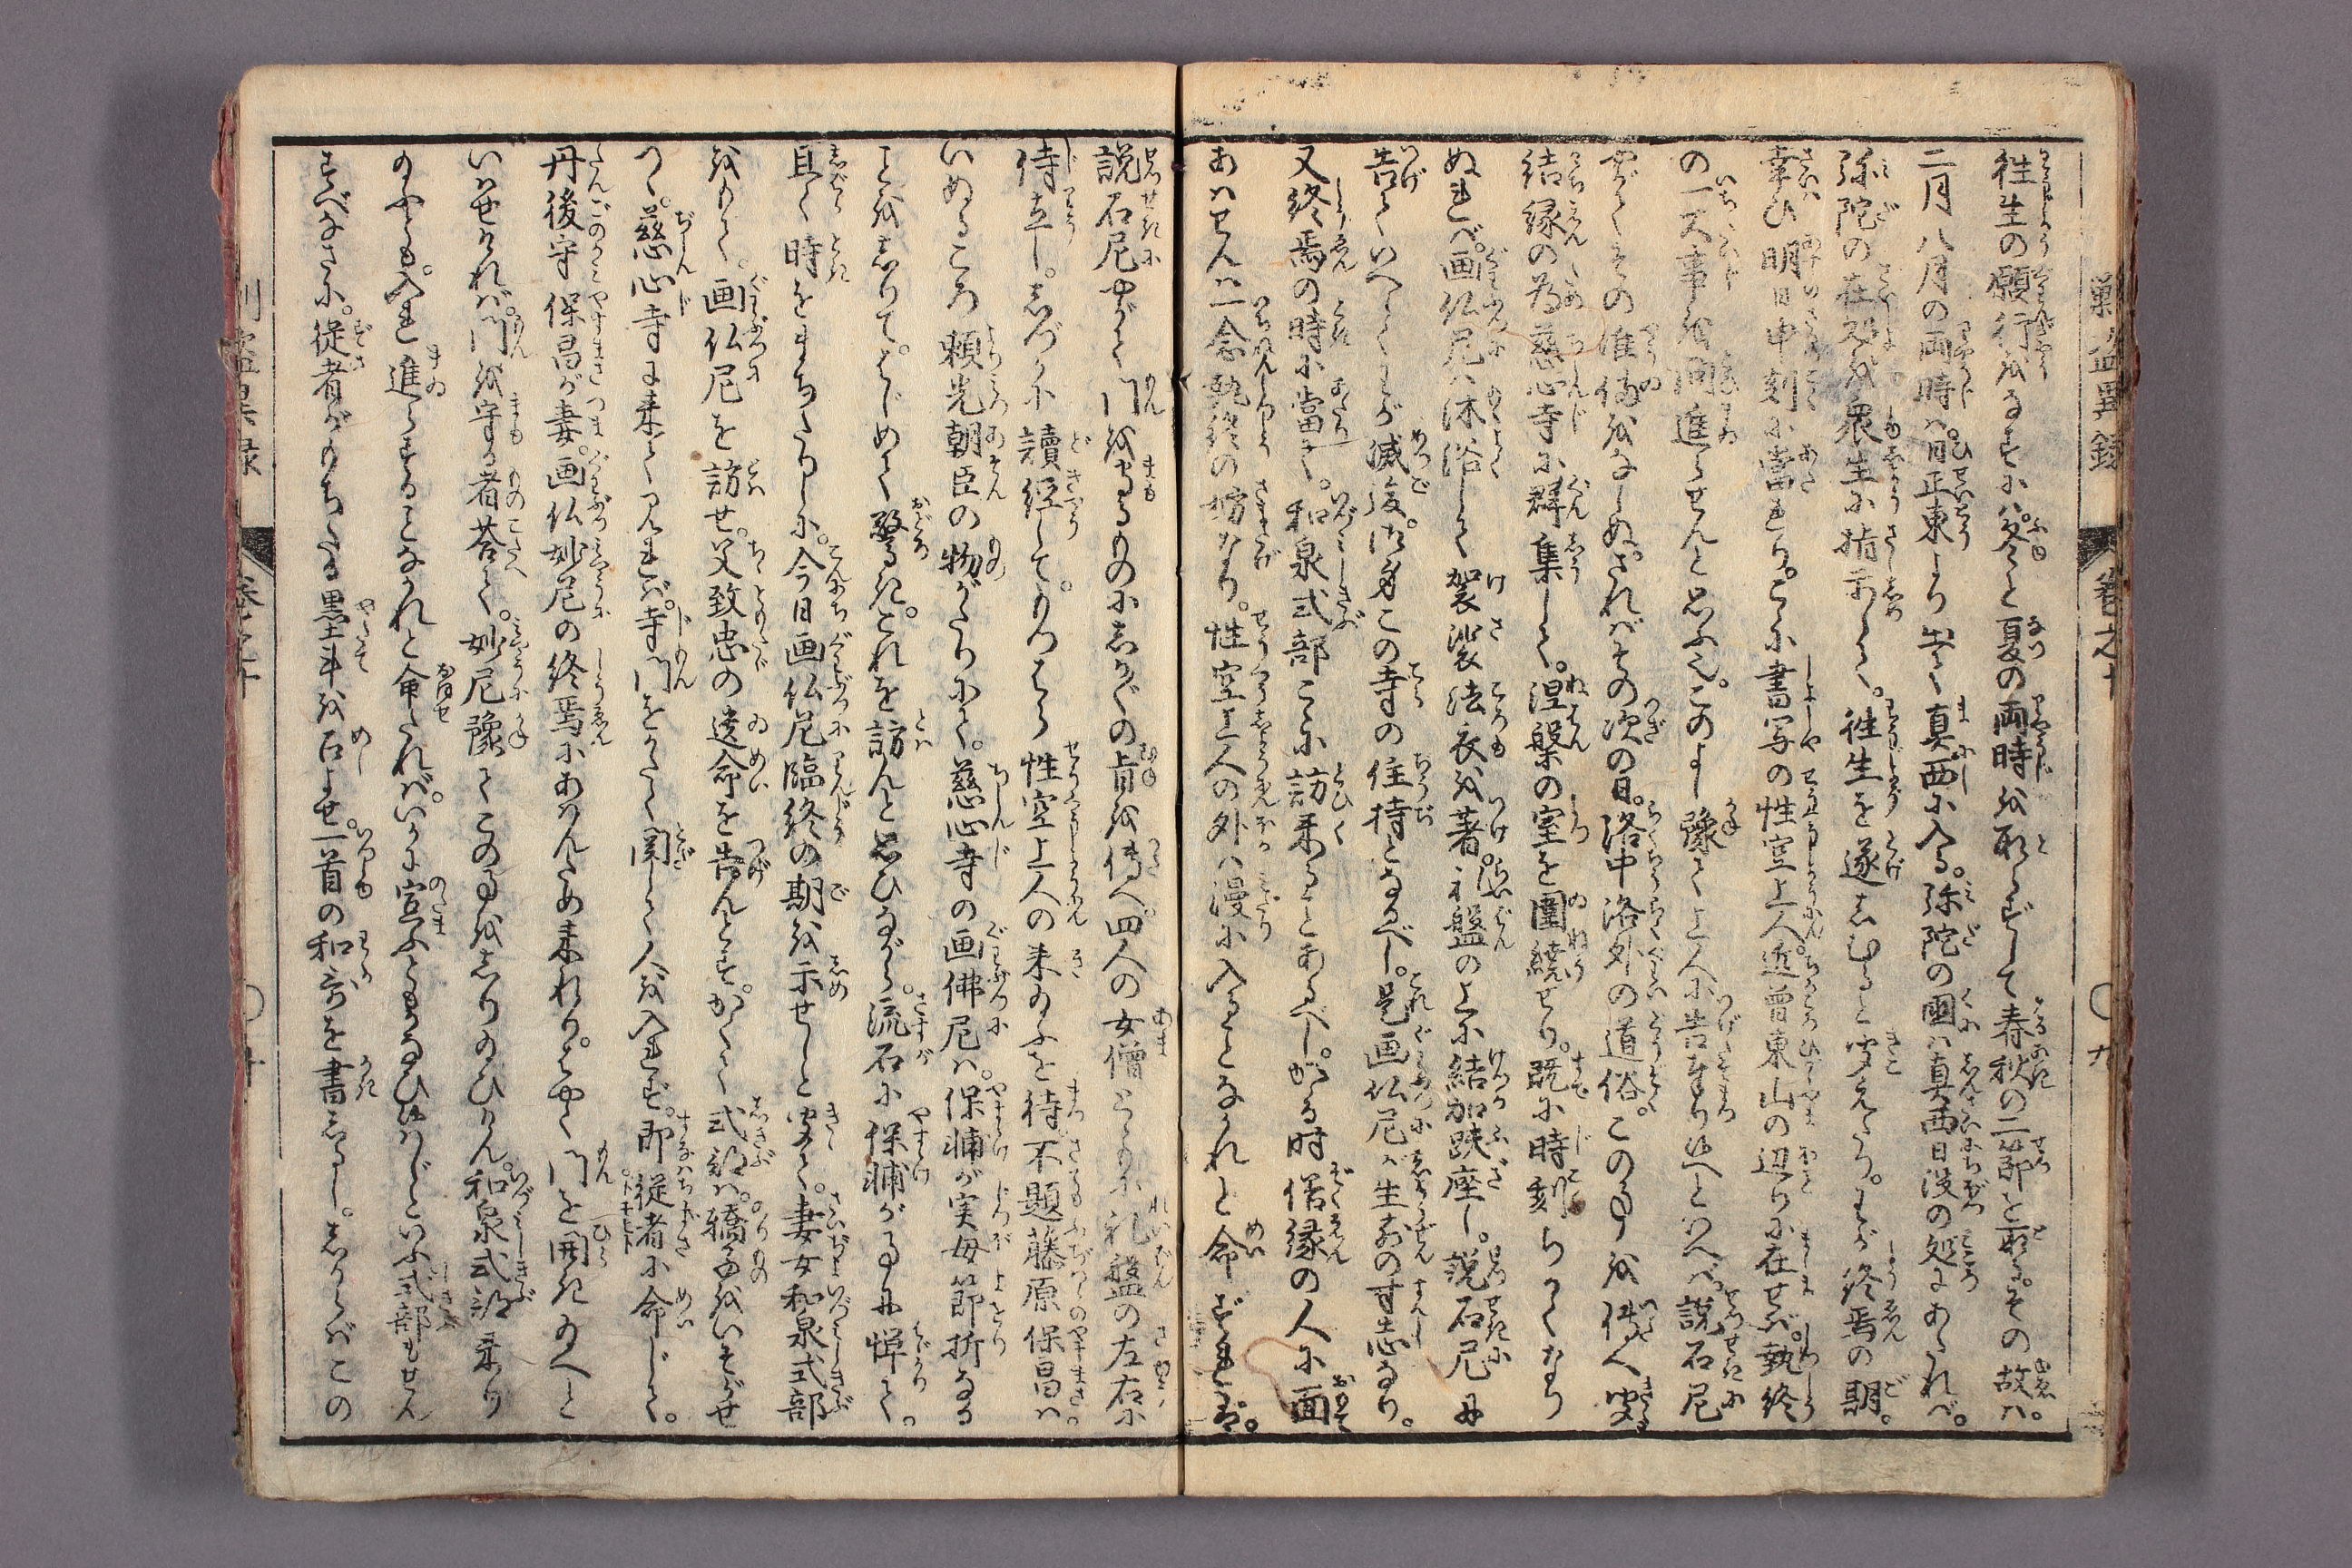 往生の願行をなすには。冬と夏の両時を取らずして春秋の二節を取る。その故は。
二月八月の両時は。日正東より出て真西に入る。弥陀の国は真西日没の処にあたれば。
弥陀の在処を衆生に指示して。往生を遂しむると聞えたり。わが終焉の期。
幸ひ明日申刻に当れり。こゝに書写の性空上人。近曽東山の辺りに在せば。執終
の一大事を問進らせんと思ふ也。このよし豫て上人に告奉り給へといへば。説石尼
やがてその准備をなしぬ。さればその次の日。洛中洛外の道俗。このよしを伝へ聞
結縁の為慈心寺に群集して。涅槃の室を囲繞せり。既に時刻ちかくなり
ぬれば。画仏尼は沐浴して袈裟法衣を着。礼盤の上に結加趺座し。説石尼に
告ていへらくわが滅後。御身この寺の住持となるべし。是画仏尼が生前の寸志なり。
又終焉の時に当て。和泉式部こゝに訪来ることあるべし。かゝる時俗縁の人に面
あはせんは一念執終の妨なり。性空上人の外は漫に入ることなかれと命ずれば。
説石尼やがて門を守るものにしか〲の旨を伝へ。四人の女僧とゝもに礼盤の左右に
侍立し。しづかに読経して。もつはら性空上人の来給ふを待。不題藤原保昌は。
いぬるころ頼光朝臣の物がたりにて。慈心寺の画佛尼は。保輔が実母節折なる
ことをしりて。はじめて驚き。これを訪んと思ひながら。流石に保輔が事に憚て。
且く時をまちたりしに。今日画仏尼臨終の期を示せしと聞て。妻女和泉式部
をもて。画仏尼を訪せ。父致忠の遺命を告んとす。かくて式部は。轎子をいそがせ
つゝ。慈心寺に来て見れば。寺門をかたく関して人を入れず。即従者に命じて。
丹後守保昌が妻。画仏妙尼の終焉にあはんため来れり。はやく門を開き給へと
いはせければ。門を守る者答て。妙尼豫てこの事をしり給ひけん。和泉式部来り
給ふとも。入れ進らすることなかれと命たれば。いかに宣ふともかなひ候はじといふ式部もせん
すべなさに。従者がもちたる墨斗を召よせ。一首の和哥を書しるし。しからばこの